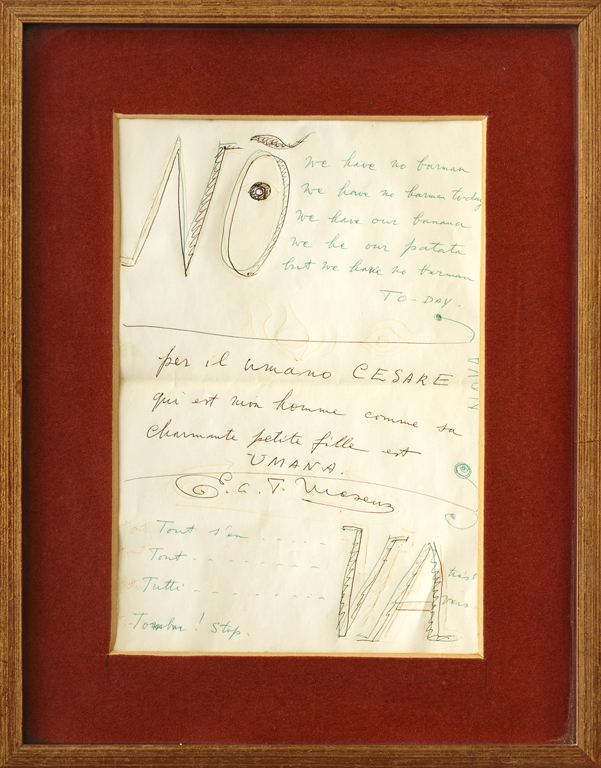 NÕ
We have no barman
We have no barman today
We have our banana
We be our patata
but we have no barman
TO-DAY.
per il umano CESARE
NOVA
qui est mon homme comme sa
charmante petite fille est
UMANA.
E. L. T. Mesens
Tout s'en . . . . . . VA
Tout . . . . . . . .
Tutti . . . . . . . .
Tomber! Stop.